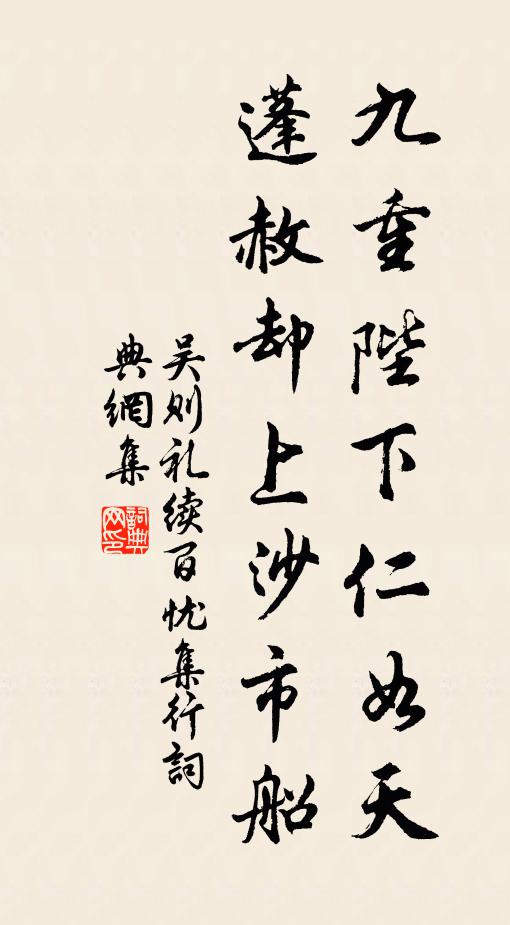 九重陛下仁如天
蓬赦却上沙市船
吴则礼续百忧集行词
典網集
詞典網印